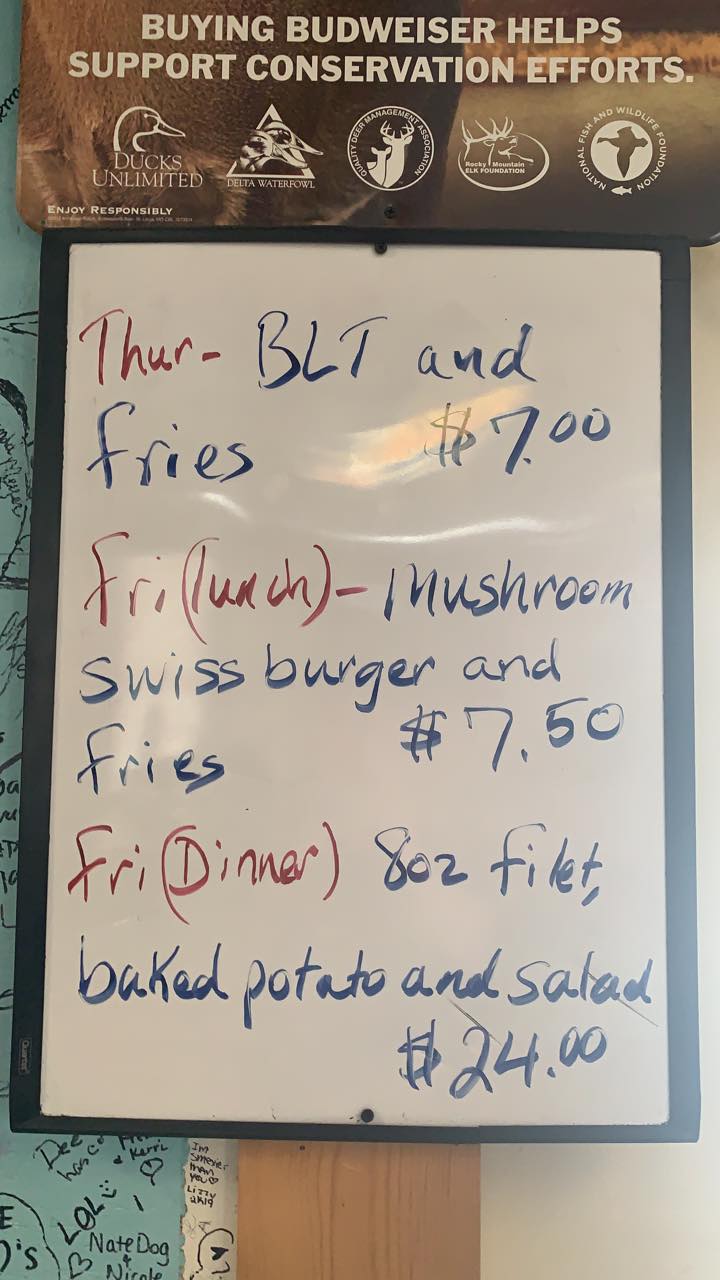 BUYING BUDWEISER HELPS
SUPPORT CONSERVATION EFFORTS.
DUCKS
UNLIMITED
DELTA WATERFOWL
QUALITY DEER MANAGEMENT ASSOCIATION
Rocky Mountain
ELK FOUNDATION
NATIONAL FISH AND WILDLIFE FOUNDATION
ENJOY RESPONSIBLY
Thur- BLT and
fries $7.00
Fri (lunch)- Mushroom
swiss burger and
fries $7.50
Fri (Dinner) 8oz filet,
baked potato and salad
$24.00
Quartet
Dee
Kerri
IM
THAN
YOU
Lizzy
2k19
LOL
Nate Dog
+
Nicole